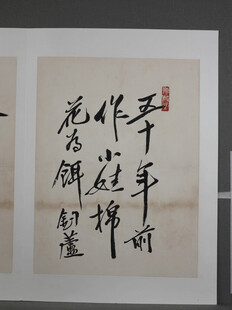 五十年前
作小娃棉
花为饵钓蘆